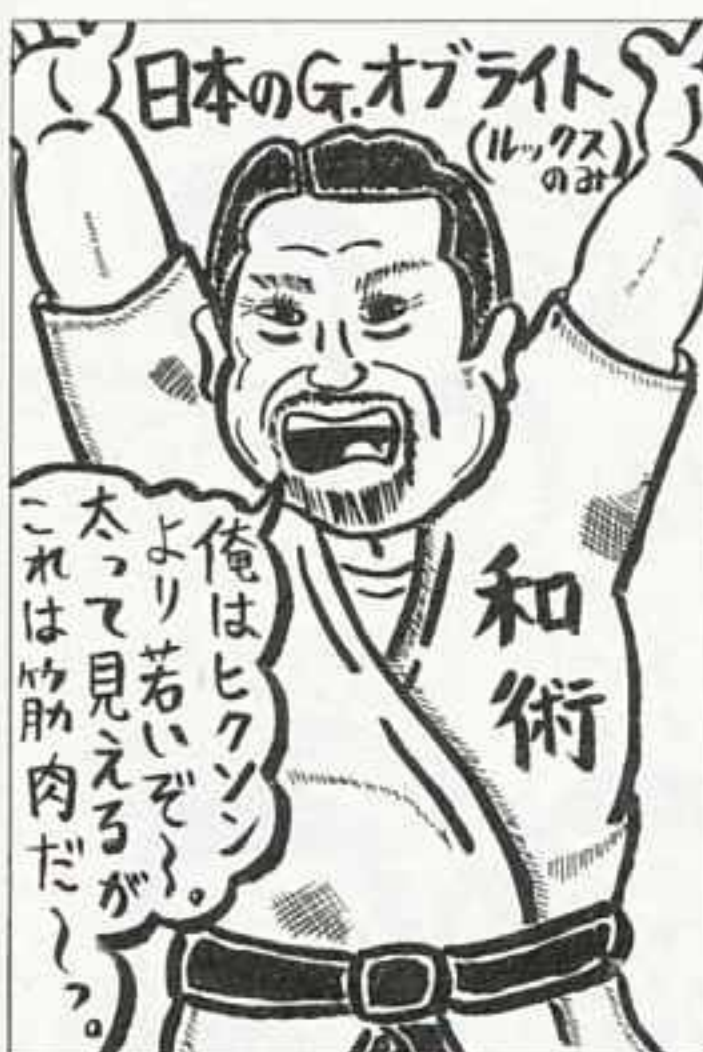 日本のG.オブライト
(ルックス
のみ)
俺はヒクソン
より若いぞ〜。
太って見えるが
これは筋肉だ〜っ。
和術